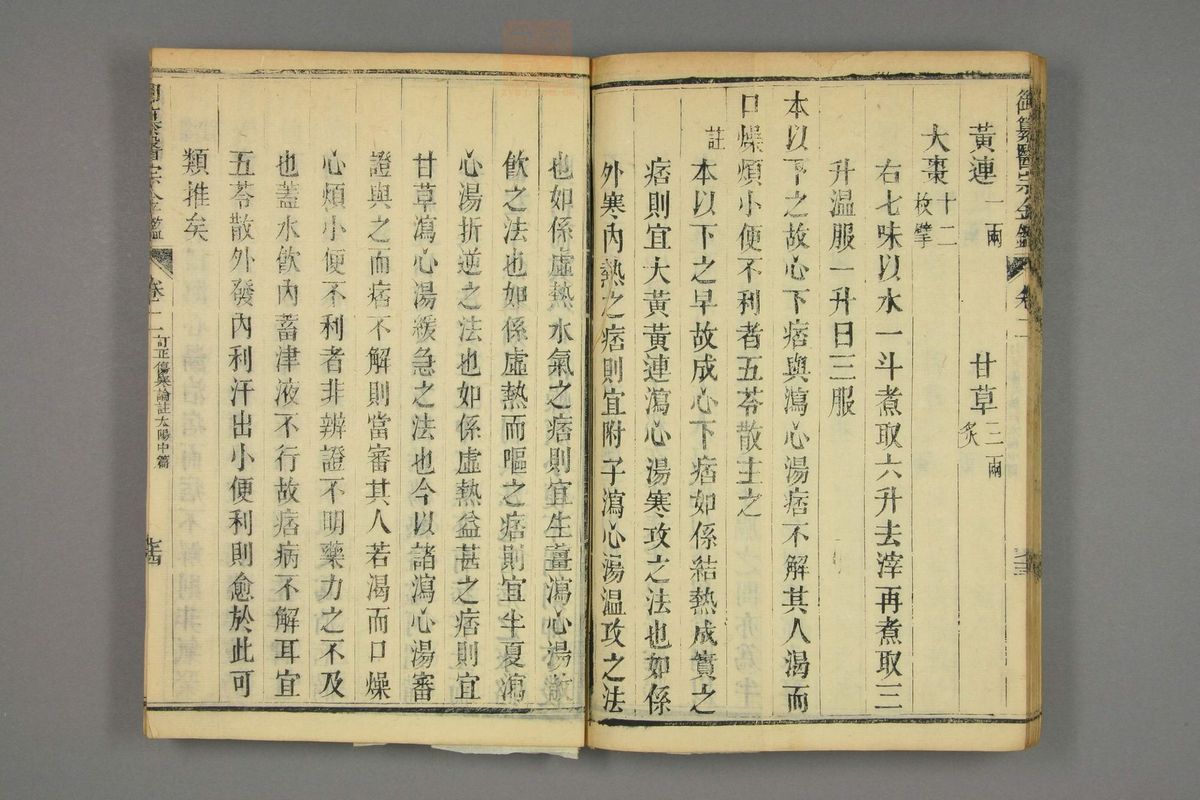 御纂醫宗金鑑 卷二
黃連一兩 甘草三兩炙
大棗十二枚擘
右七味以水一斗煮取六升去滓再煮取三
升溫服一升日三服
本以下之故心下痞與瀉心湯痞不解其人渴而
口燥煩小便不利者五苓散主之
註 本以下之早故成心下痞如係結熱成實之
痞則宜大黃黃連瀉心湯寒攻之法也如係
外寒內熱之痞則宜附子瀉心湯溫攻之法
也如係虛熱水氣之痞則宜生薑瀉心湯散
飲之法也如係虛熱而嘔之痞則宜半夏瀉
心湯折逆之法也如係虛熱益甚之痞則宜
甘草瀉心湯緩急之法也今以諸瀉心湯審
證與之而痞不解則當審其人若渴而口燥
心煩小便不利者非辨證不明藥力之不及
也蓋水飲內蓄津液不行故痞病不解耳宜
五苓散外發內利汗出小便利則愈於此可
類推矣
醫宗金鑑 卷二 訂正傷寒論註太陽中篇